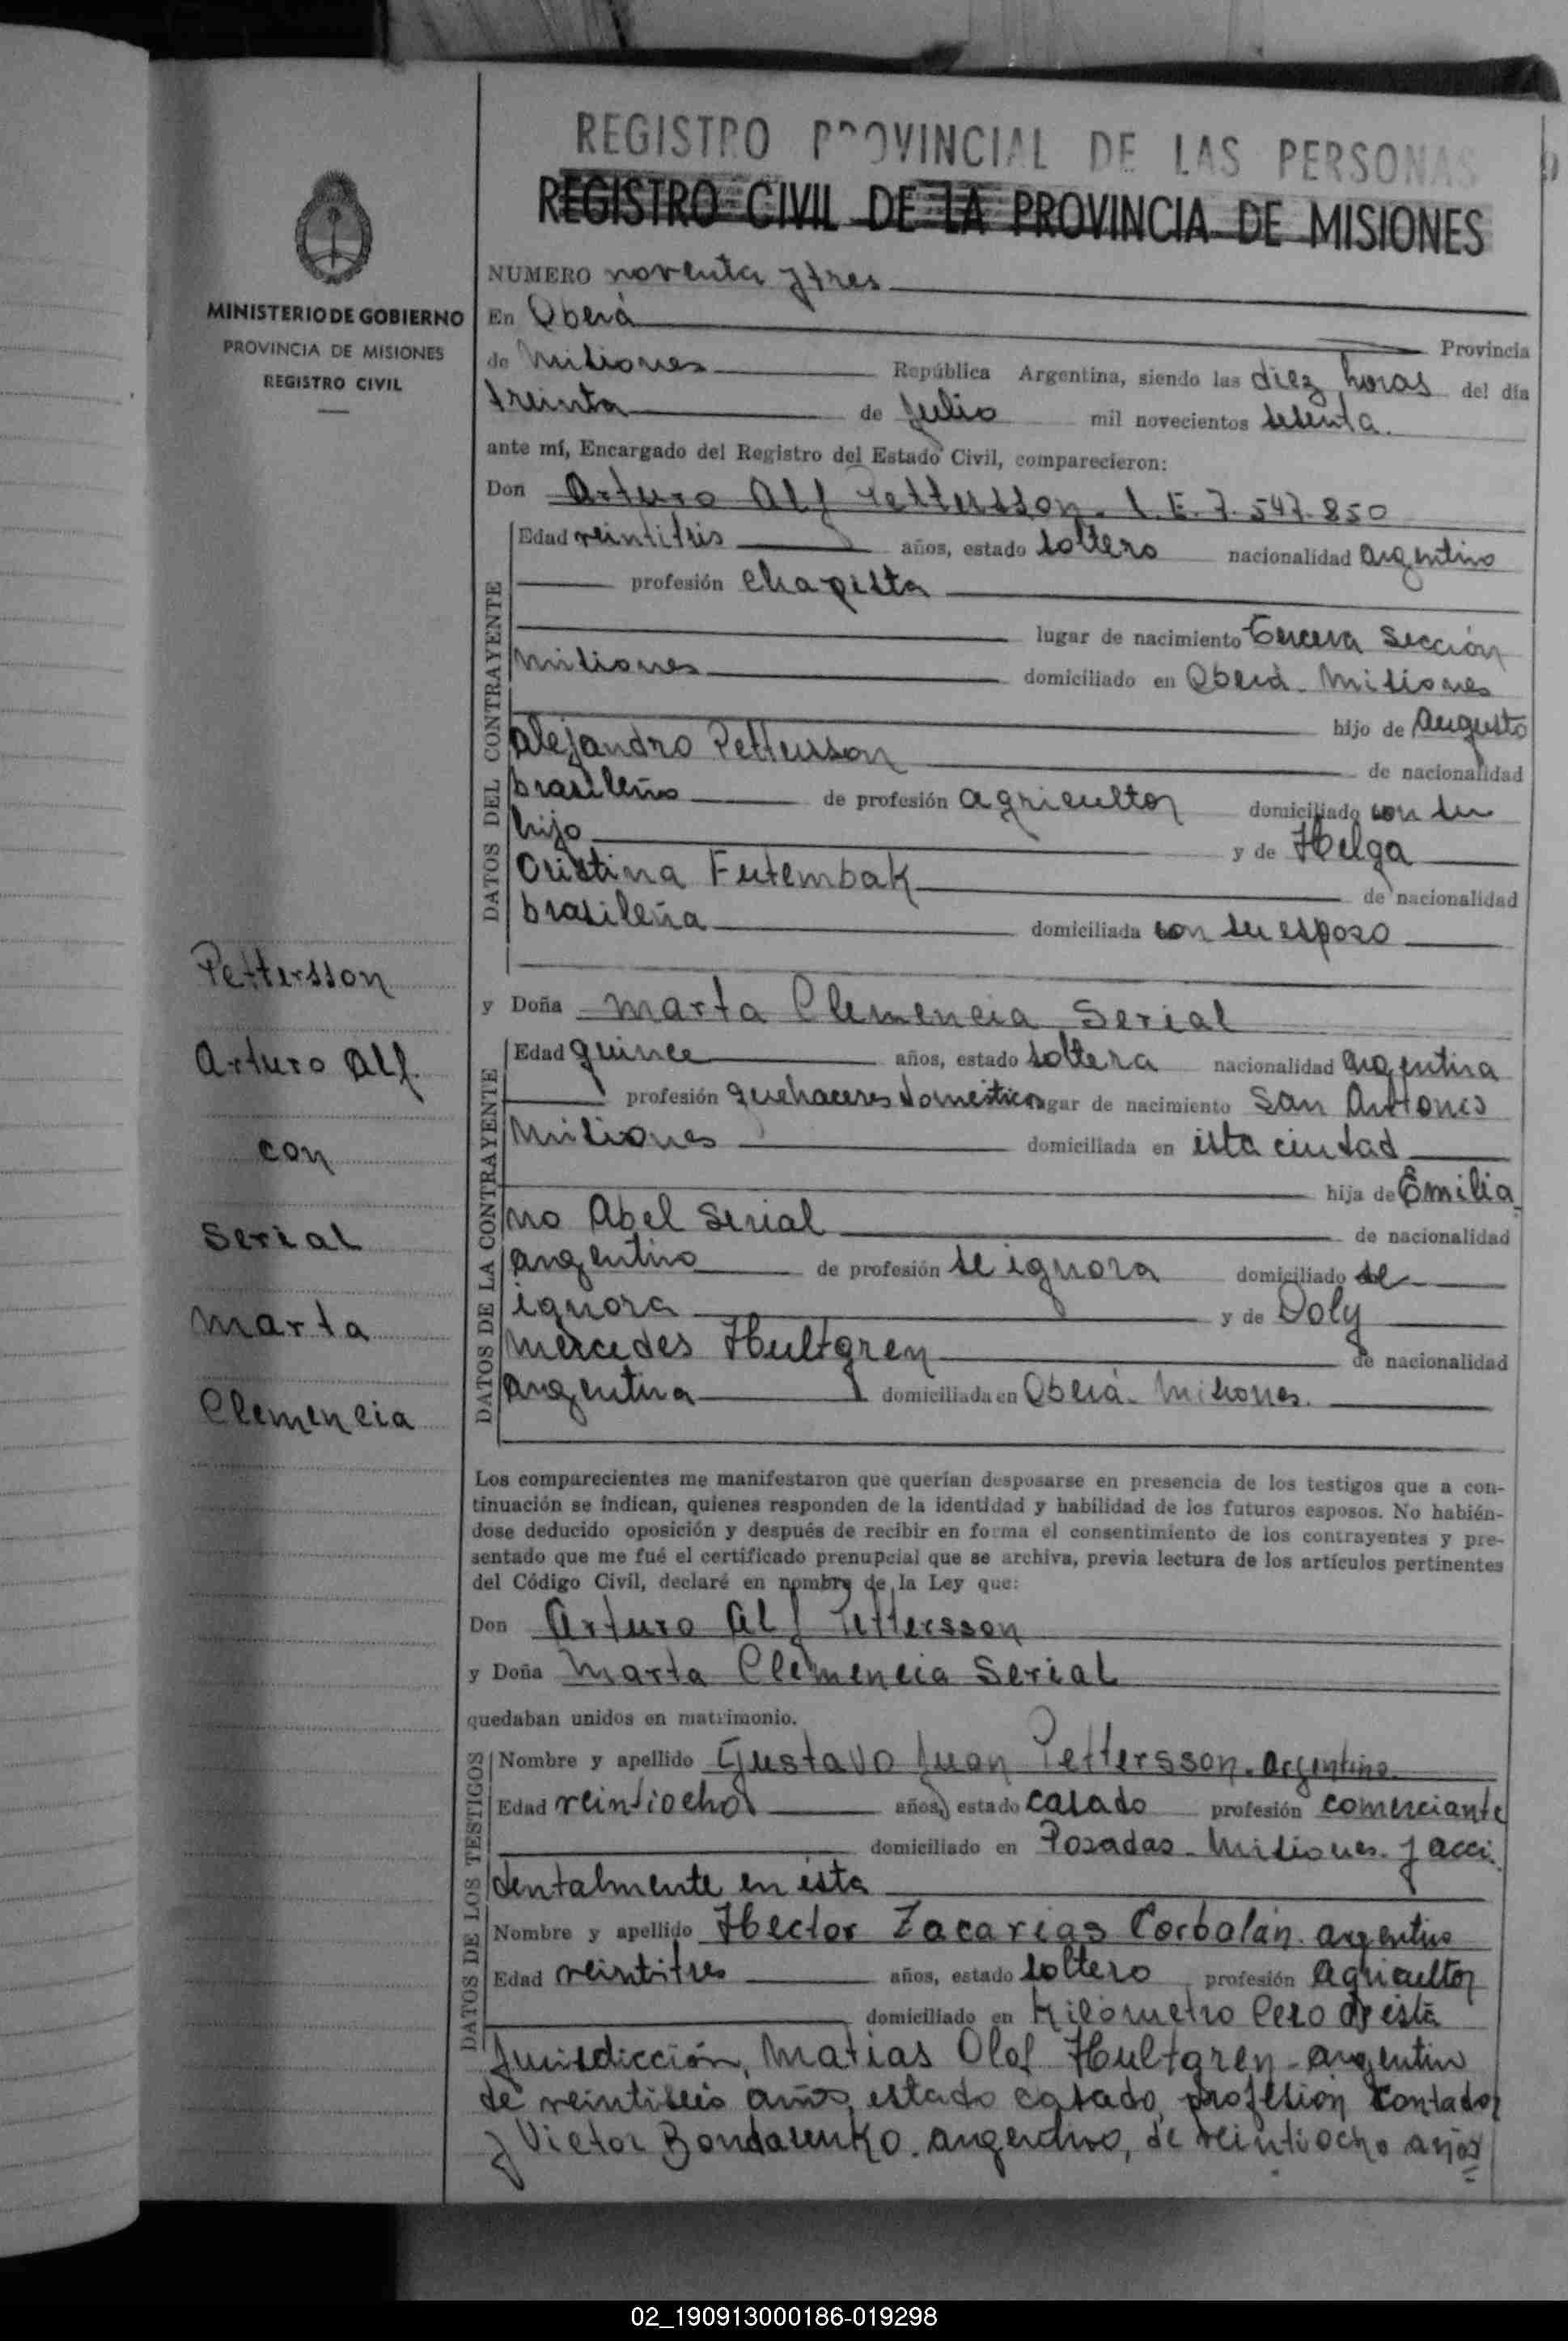 REGISTRO PROVINCIAL DE LAS PERSONAS
REGISTRO CIVIL DE LA PROVINCIA DE MISIONES
MINISTERIO DE GOBIERNO
PROVINCIA DE MISIONES
REGISTRO CIVIL
NUMERO noventa y tres
En Oberá
Provincia
de Misiones República Argentina, siendo las diez horas del día
treinta de Julio mil novecientos sesenta.
ante mí, Encargado del Registro del Estado Civil, comparecieron:
Don Arturo Alf Pettersson. L.E. 7.547.850
DATOS DEL CONTRAYENTE
Edad veintitrés años, estado soltero nacionalidad argentino
profesión chapista
lugar de nacimiento Tercera Sección
Misiones domiciliado en Oberá. Misiones
hijo de Augusto
Alejandro Pettersson de nacionalidad
brasileño de profesión agricultor domiciliado con su
hijo y de Helga
Cristina Futembak de nacionalidad
brasileña domiciliada con su esposo
Pettersson
Arturo Alf.
con
Serial
Marta
Clemencia
y Doña Marta Clemencia Serial
DATOS DE LA CONTRAYENTE
Edad quince años, estado soltera nacionalidad argentina
profesión quehaceres domésticos lugar de nacimiento San Antonio
Misiones domiciliada en ésta ciudad
hija de Emilia
no Abel Serial de nacionalidad
argentino de profesión se ignora domiciliado se
ignora y de Doly
Mercedes Hultgren de nacionalidad
argentina domiciliada en Oberá. Misiones.
Los comparecientes me manifestaron que querían desposarse en presencia de los testigos que a con-
tinuación se indican, quienes responden de la identidad y habilidad de los futuros esposos. No habién-
dose deducido oposición y después de recibir en forma el consentimiento de los contrayentes y pre-
sentado que me fué el certificado prenupcial que se archiva, previa lectura de los artículos pertinentes
del Código Civil, declaré en nombre de la Ley que:
Don Arturo Alf Pettersson
y Doña Marta Clemencia Serial
quedaban unidos en matrimonio.
DATOS DE LOS TESTIGOS
Nombre y apellido Gustavo Juan Pettersson. Argentino
Edad veintiocho años, estado casado profesión comerciante
domiciliado en Posadas. Misiones. y acci
dentalmente en ésta
Nombre y apellido Hector Zacarias Corbalán. argentino
Edad veintitres años, estado soltero profesión agricultor
domiciliado en Kilómetro Cero de ésta
Jurisdicción, Matias Olof Hultgren - argentino
de veintiseis años, estado casado, profesión contador
y Victor Bondarenko. argentino, de veintiocho años
02_190913000186-019298